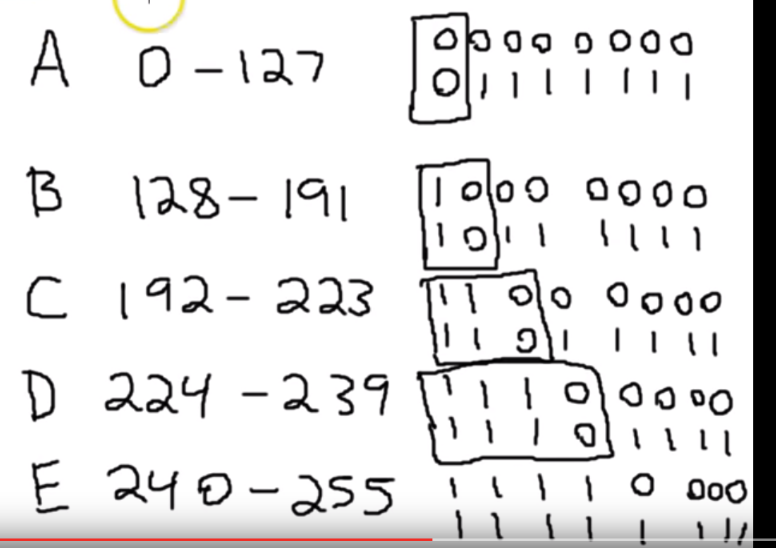 A 0-127 0 0 0 0 0 0 0 0
0 1 1 1 1 1 1 1
B 128-191 1 0 0 0 0 0 0 0
1 0 1 1 1 1 1 1
C 192-223 1 1 0 0 0 0 0 0
1 1 0 1 1 1 1 1
D 224-239 1 1 1 0 0 0 0 0
1 1 1 0 1 1 1 1
E 240-255 1 1 1 1 0 0 0 0
1 1 1 1 1 1 1 1